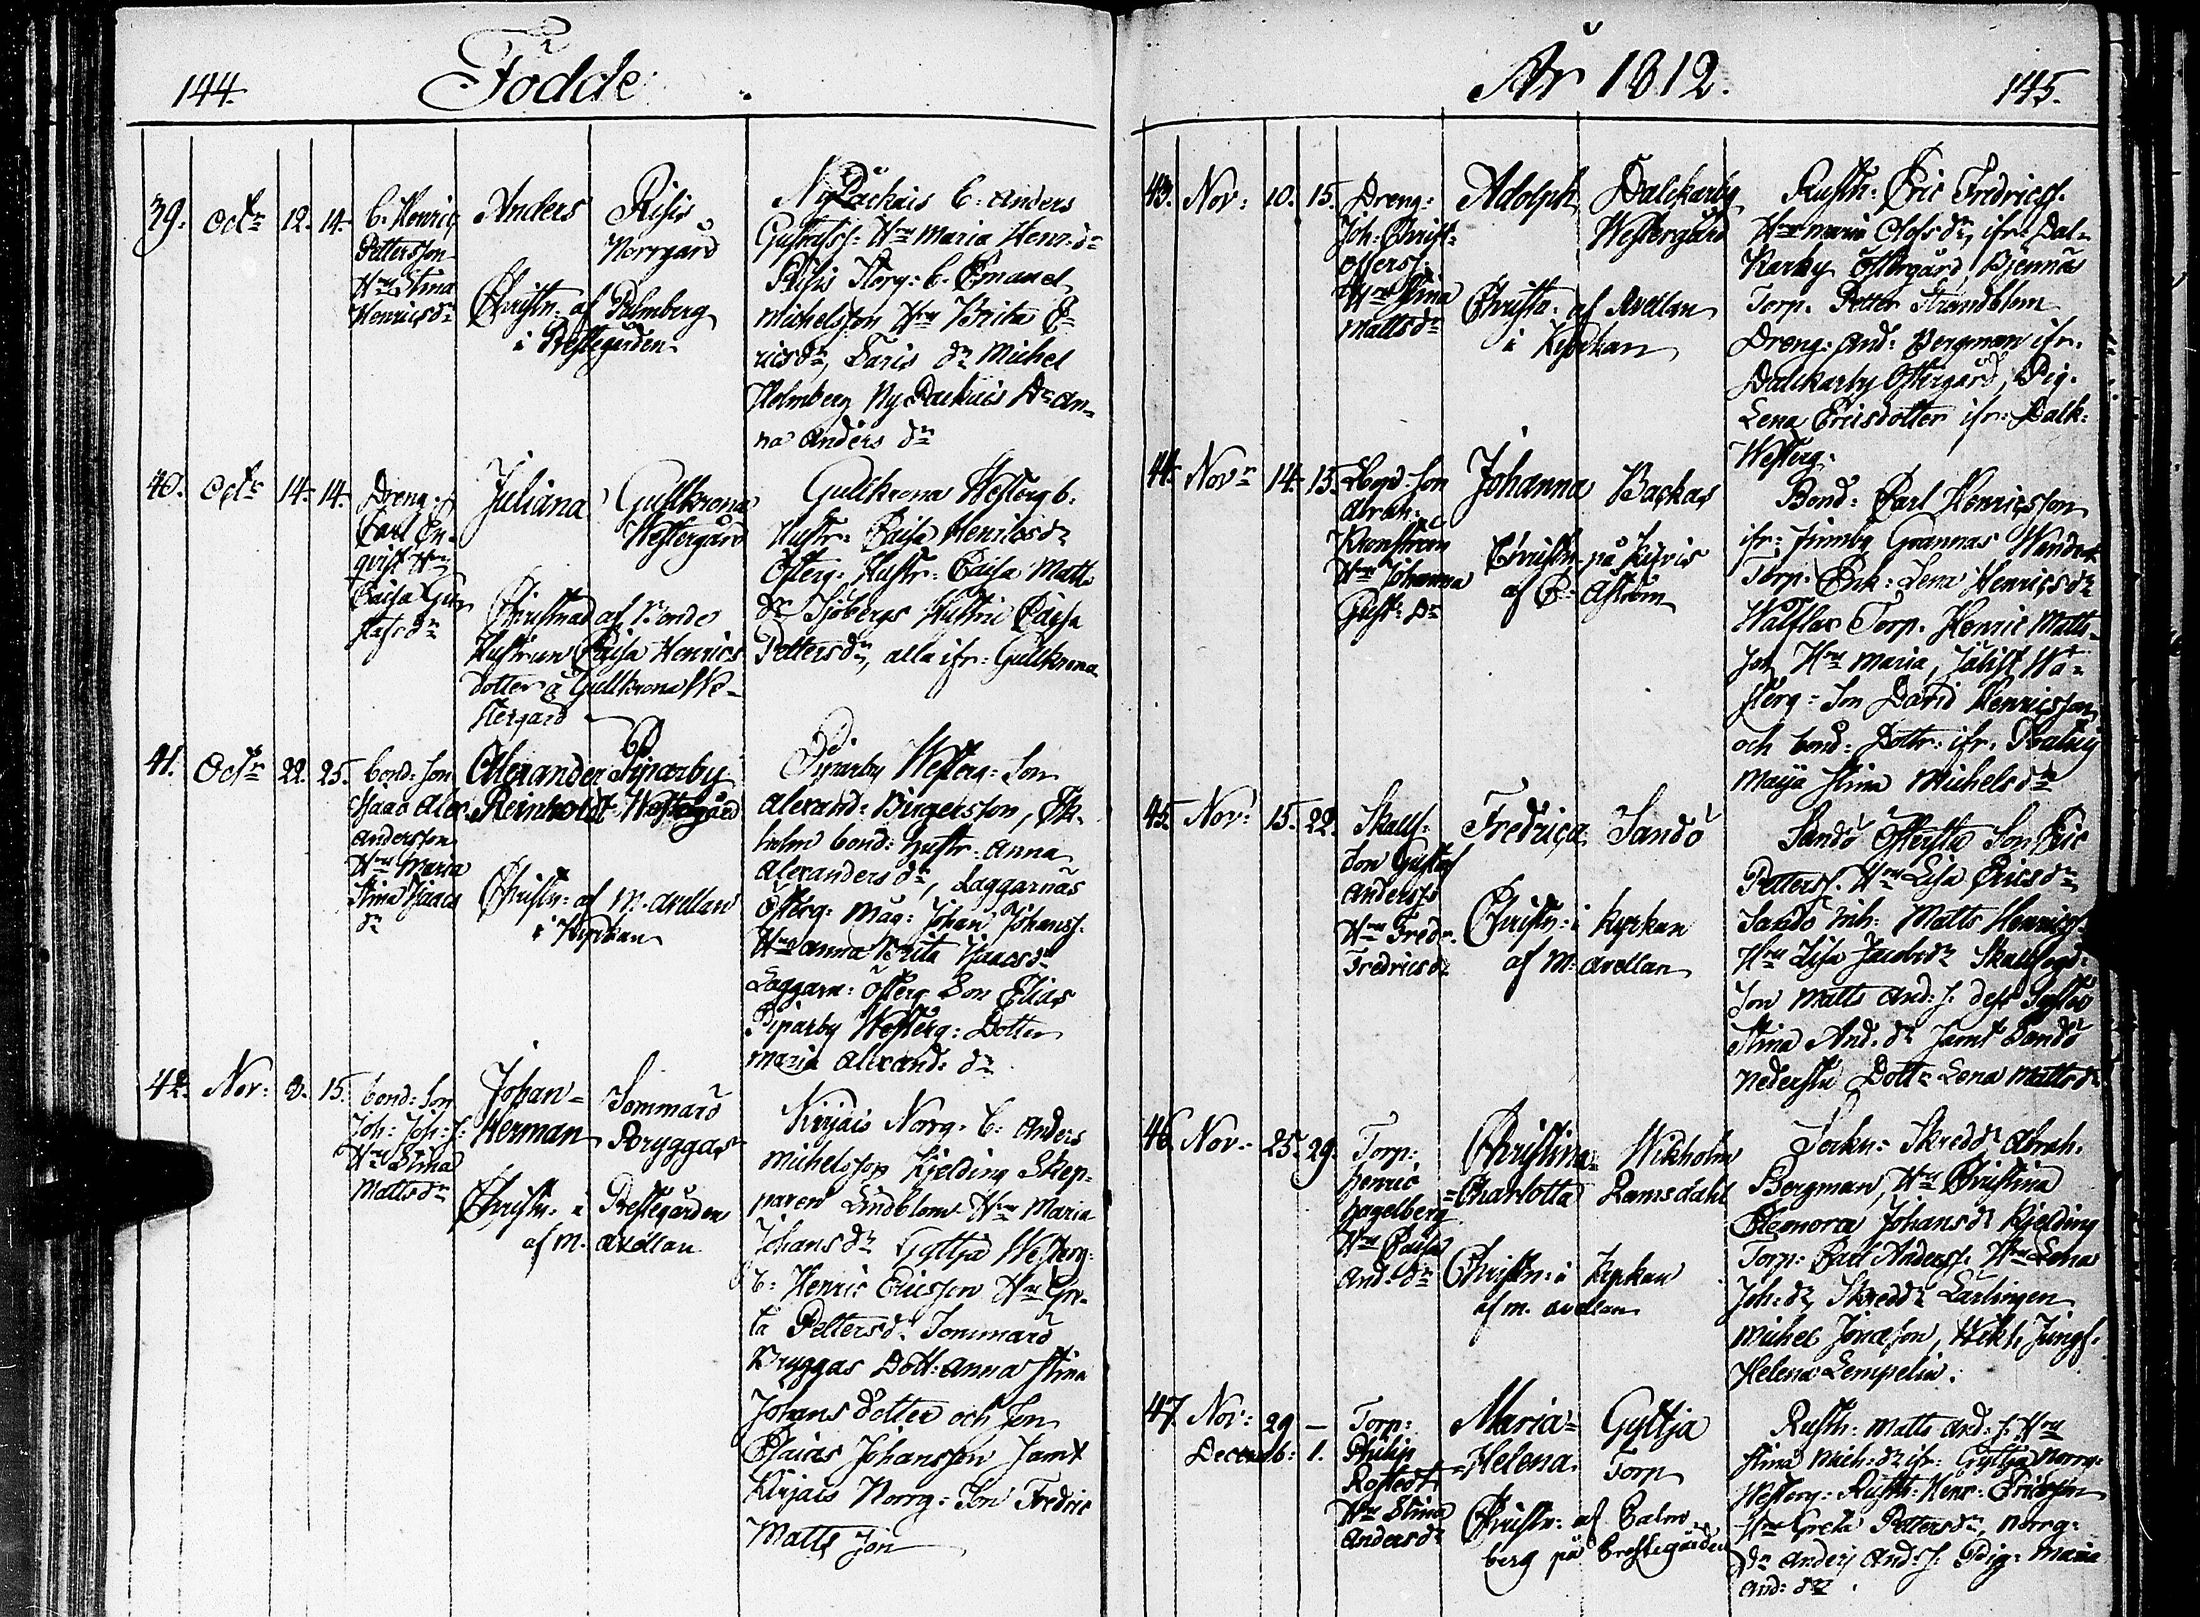 144.
Födde
39. Octr 12. 14.
b. Henric
Pettersson
Hru Stina
Henricsdr
Anders
Risis
Norrgård
Christn. af Palmberg
i Prestegården
Ny Packais b. Anders
Gustafss. Hru Maria Henr. dr
Risis Norg. b. Emanuel
Michelsson Hru Brita E-
ricsdr, dr Michel
Holmberg Ny Packais An-
na Anders dr
40. Octr 14. 14.
Dreng.
Carl En-
qvist Hru
Caisa Gu-
stafsdr
Juliana
Gullkrona
Westergård
Christnad af Bondes
Hustrun Caisa Henrics
dotter å Gullkrona We-
stergård
Gullkrona Westerg b.
Hustr. Caisa Henricsdr
Österg. Hustr. Caisa Matts
dr Sjöbergs Hustru Caisa
Pettersdr, alla ifr. Gullkrona
41. Octr 22. 25.
bond. son
Isaac Alex.
Andersson
Hru Maria
Stina Isaacs
dr
Alexander
Reinholdt
Piparby
Westergård
Christn. af M. Avellan
i Kyrkan
Piparby Westerg. Son
Alexand. Birgersson, Ek-
holm bond. hustr. Anna
Alexanders dr, Laggarnäs
Österg. Måg. Johan Johanss.
Hru Anna Brita Isaacsdr
Laggarn. Österg Son Elias
Piparby Westerg. Dotter
Maria Alexand. dr
42. Nov. 3. 15.
bond. son
Joh. Joh. s.
Hru Stina
Mattsdr
Johan=
Herman
Sommarö
Bryggas
Christn. i Prestegården
af M. Avellan
Kirjais Norrg. b. Anders
Michelsson Kjelding Skep-
paren Lindblom Hru Maria
Johansdr Gyltjä Westerg.
b. Henric Ericsson Hru Gre-
ta Pettersdr Sommarö
Bryggas Dott. Anna Stina
Johans dotter och Son
Esaias Johansson samt
Kirjais Norrg. Son Fredric
Matts son
År 1812.
145.
43. Nov: 10. 15.
Dreng.
Joh. Christ-
offerss.
Hru Stina
Mattsdr
Adolph
Dalckarby
Westergård
Christn. af Avellan
i Kyrkan
Rusth. Eric Fredricss.
Hru Maria Olofsdr, ifr. Dal-
karby Östergård, Bjennäs
Torp. Petter Strandblom
Dreng. And. Bergman ifr.
Dalckarby Östergård, Pig.
Lena Ericsdotter ifr. Dalk.
Westerg.
44. Novr 14. 15.
Bond. son
Abrah.
Kronström
Hru Johanna
Gust. dr
Johanna
Backas
Christn. på
af Åström
Bond. Carl Henricsson
ifr. Finnby Grannas
Torp. Enk. Lena Henricsdr
Torp. Henric Matts-
son Hru Maria,
Son David Henricsson
och bond. Dottr. ifr.
Maija Stina Michelsdr
45. Nov. 15. 22.
Skall-
Gustaf
Anderss
Hru Fredr.
Fredricsdr
Fredrica
Sandö
Christn. i Kyrkan
af M. Avellan
Sandö Öfversta Son Eric
Petterss. Hru Lisa Ericsdr
Sandö Inh. Matts Henricss.
Hru Lisa Jacobsdr
Son Matts And. s. dess Syster
Stina And. dr samt Sandö
Nedersta Dottr Lena Mattsdr
46. Nov. 25. 29.
Torp.
Henric
Hagelberg
Hru Caisa
And. dr
Christina=
=Charlotta
Wikholm
Ramsdahl
Christn. i Kyrkan
af M. Avellan
Sockn. Skreddr Abrah.
Bergman, Hru Christina
Eleonora Johansdr Kjelding
Torp. Carl Anderss. Hru Lena
Joh. dr, Skreddr Lärlingen
Michel Jonasson, Jungf.
Helena Lempelia.
47 Nov. 29 —
Decemb. 1.
Torp.
Philip
Rostedt
Hru Stina
Andersdr
Maria=
=Helena.
Gyltja
Torp
Christn. af Palm-
berg på Prestegården
Rusth. Matts And. s. Hru
Stina Mich. dr ifr. Gyltja Norrg.
Westerg. Rusth. Henr. Ericsson
Hru Greta Pettersdr, Norrg.
Dr Anders And. s. Pig. Maria
And. dr.